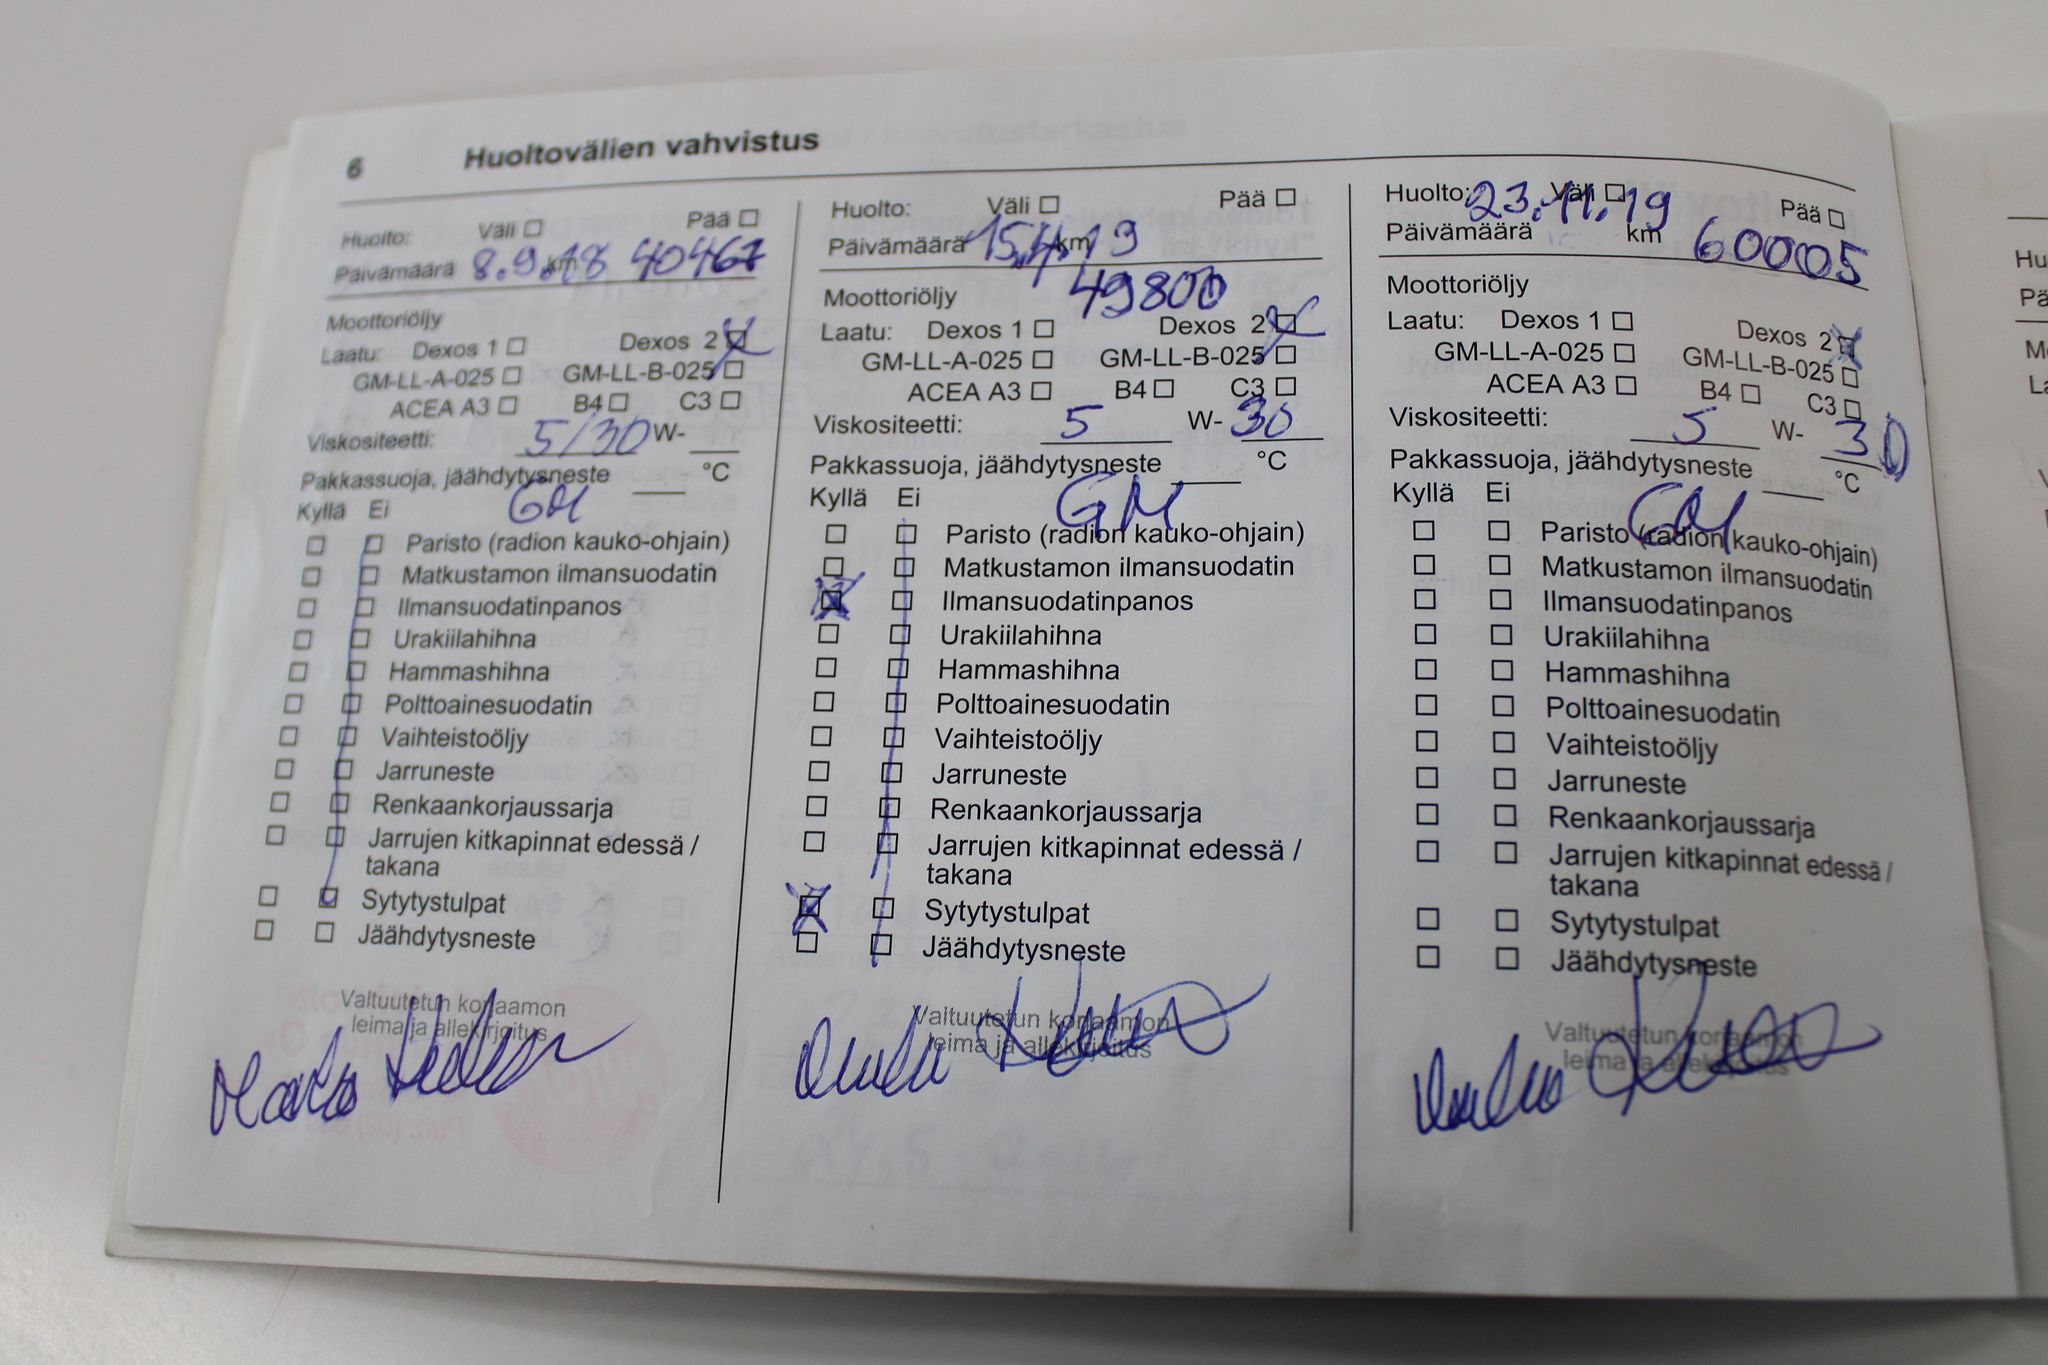 6 Huoltovälien vahvistus
Huolto: Väli ☐ Pää ☐
Päivämäärä 8.9.18 km 40467
Moottoriöljy
Laatu: Dexos 1 ☐ Dexos 2 ☒
GM-LL-A-025 ☐ GM-LL-B-025 ☐
ACEA A3 ☐ B4 ☐ C3 ☐
Viskositeetti: 5/30 W-
Pakkassuoja, jäähdytysneste °C
Kyllä Ei GM
☐ ☐ Paristo (radion kauko-ohjain)
☐ ☐ Matkustamon ilmansuodatin
☐ ☐ Ilmansuodatinpanos
☐ ☐ Urakiilahihna
☐ ☐ Hammashihna
☐ ☐ Polttoainesuodatin
☐ ☐ Vaihteistoöljy
☐ ☐ Jarruneste
☐ ☐ Renkaankorjaussarja
☐ ☐ Jarrujen kitkapinnat edessä /
takana
☐ ☐ Sytytystulpat
☐ ☐ Jäähdytysneste
Valtuutetun korjaamon
leima ja allekirjoitus
Huolto: Väli ☐ Pää ☐
Päivämäärä 15.4.19 km
49800
Moottoriöljy
Laatu: Dexos 1 ☐ Dexos 2 ☒
GM-LL-A-025 ☐ GM-LL-B-025 ☐
ACEA A3 ☐ B4 ☐ C3 ☐
Viskositeetti: 5 W- 30
Pakkassuoja, jäähdytysneste °C
Kyllä Ei GM
☐ ☐ Paristo (radion kauko-ohjain)
☐ ☐ Matkustamon ilmansuodatin
☒ ☐ Ilmansuodatinpanos
☐ ☐ Urakiilahihna
☐ ☐ Hammashihna
☐ ☐ Polttoainesuodatin
☐ ☐ Vaihteistoöljy
☐ ☐ Jarruneste
☐ ☐ Renkaankorjaussarja
☐ ☐ Jarrujen kitkapinnat edessä /
takana
☒ ☐ Sytytystulpat
☐ ☐ Jäähdytysneste
Valtuutetun korjaamon
leima ja allekirjoitus
Huolto: Väli ☐ Pää ☐
23.11.19
Päivämäärä km 60005
Moottoriöljy
Laatu: Dexos 1 ☐ Dexos 2 ☒
GM-LL-A-025 ☐ GM-LL-B-025 ☐
ACEA A3 ☐ B4 ☐ C3 ☐
Viskositeetti: 5 W- 30
Pakkassuoja, jäähdytysneste °C
Kyllä Ei GM
☐ ☐ Paristo (radion kauko-ohjain)
☐ ☐ Matkustamon ilmansuodatin
☐ ☐ Ilmansuodatinpanos
☐ ☐ Urakiilahihna
☐ ☐ Hammashihna
☐ ☐ Polttoainesuodatin
☐ ☐ Vaihteistoöljy
☐ ☐ Jarruneste
☐ ☐ Renkaankorjaussarja
☐ ☐ Jarrujen kitkapinnat edessä /
takana
☐ ☐ Sytytystulpat
☐ ☐ Jäähdytysneste
Valtuutetun korjaamon
leima ja allekirjoitus